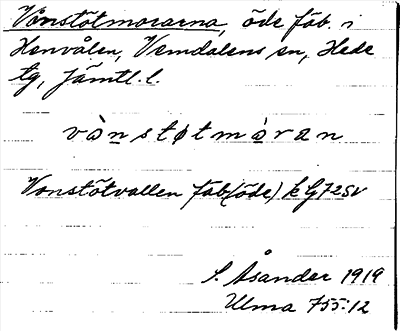 Vonstötmorarna, öde fäb. i
Henvålen, Vemdalens sn, Hede
tg, Jämtl. l.
vȯ̀nstøtmȯ̀ran
Vonstötvallen fäb (öde) k G7 2SV
S. Åsander 1919
Ulma 755:12